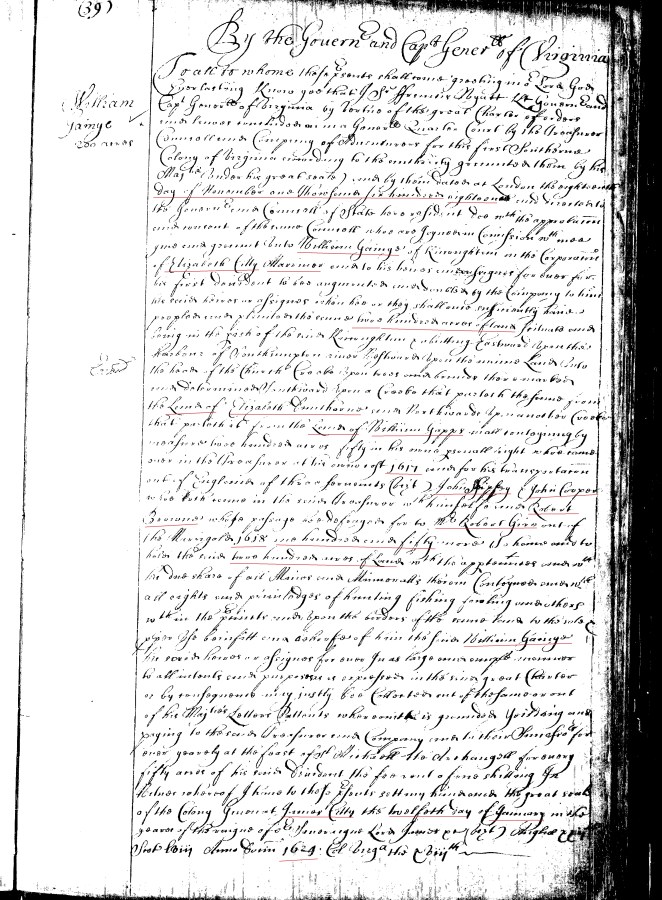 (39)
By the Govern and Capt Gener of Virginia
William
Gainye
200 acres
To all to whome these psents shall come greeting in o Lord God
Everlasting Know yee that I Sr Francis Wyatt Kt Governor and
Capt Generall of Virginia by Vertue of the great Charter of orders
and lawes concluded on in a Generall Quarter Court by the Treasurer
Councell and Company of Adventurers for this first Southerne
Colony of Virginia according to the authority graunted them by his
Matie under his great seale) and by them dated at London the eighteenth
day of November one thowsand six hundred eighteene and directed to
the Governor and Councell of State here resident Doe wth the approbation
and consent of the same Councell who are Joyned in Comission wth mee
give and graunt unto William Gainge of Kicoughtan in the Corporation
of Elizabeth Citty Mariner and to his heires and assignes for ever for
his first devident to bee augmented and doubled by the Company to him
his said heires or assignes when hee or they shall once sufficiently have
peopled and planted the same two hundred acres of land scituate and
being in the of the said Kicoughtan abutting Eastward upon the
harbour of Southhampton river Westward upon the maine Land unto
the head of the Church Creeke
and determined Southward upon a Creeke that parteth the same from
the Land of Elizabeth Dunthorne and Northward upon another Creeke
that parteth it from the Land of William Gapps and contayning by
measure two hundred acres fifty in his owne psonall right who came
over in the Treasurer at his owne cost 1617 and for his transportation
out of England of three servants (vizt) John &amp; John Cooper
who both came in the said Treasurer wth himselfe and Robert
Browne whose passage was defrayed for to Mr Robert out of
the Marigold 1618 one hundred and fifty more To have and to
hold the said two hundred acres of Land wth the appurtences and wth
his due share of all Mines and Mineralls therein Conteyned and wth
all rights and priviledges of hunting fishing fowling and others
wth in the precincts and upon the borders of the same and to the sole
pper use benefitt and behoofe of him the said William Gainge
his said heires or assignes for ever In as large and ample manner
to all intents and purposes as is expressed in the said great Charter
or by consequence may justly bee Collected out of the same or out
of his Maties Letters Pattents whereon it is grounded Yeilding and
paying to the said Treasurer and Company and to their Successors for
ever yearely at the feast of St Michaell the Archangell for every
fifty acres of his said Devident the fee rent of one shilling In
Witnes whereof I have to these psents sett my hand and the great seale
of the Colony Given at James Citty the twelfeth day of January in the
yeares of the raigne of or Soveraigne Lord James
Scot Anno Domi 1624 Col Virga the